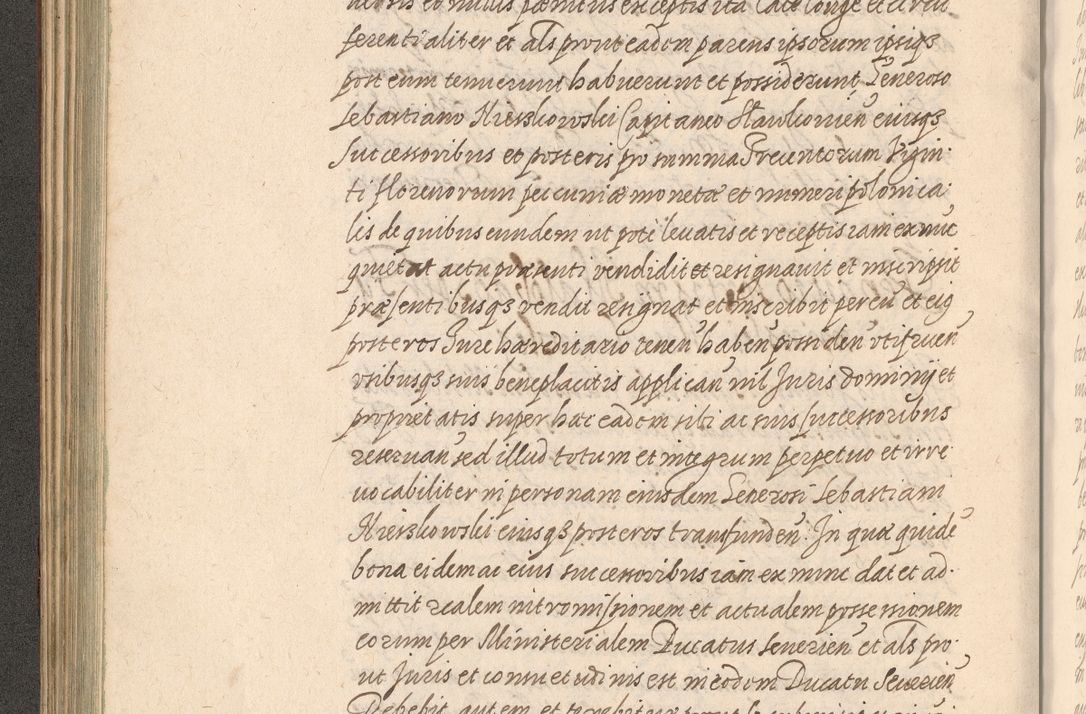 ferenti aliter et als prout eadem parens ipsorum ipsiqȝ
post eum tenuerunt habuerunt et possiderunt Generoso
Sebastiano Kierszkowski Capitaneo Slawkouien eiusqȝ
Successoribus et posteris pro summa Trecentorum Vigin
ti florenorum pecuniæ monetæ et numeri polonica:
lis de quibus eundem ut pote leuatis et receptis iam ex nuc
quietat actu præsenti vendidit et resignauit et inscripsit
præsentibusqȝ vendit resignat et inscribit per eu et eiq
posteros Jure hæreditario tenen haben possiden vtifruen
vsibusqȝ suis beneplacitis applican nil Juris dominij et
proprietatis super hac eadem sibi ac suis successoribus
reseruan sed illud totum et integrum perpetuo et irre
uocabiliter in personam eiusdem Generosi Sebastiani
Kierszkowski eiusqȝ posteros transfunden. In quæ quide
bona eidem ac eius successoribus iam ex nunc dat et ad:
mittit realem intromissionem et actualem possessionem
eorum per Ministerialem Ducatus Seuerien et als pro:
ut Juris et consuetudinis est in eodem Ducatu Seuerien
Debebit autem et tenebitur